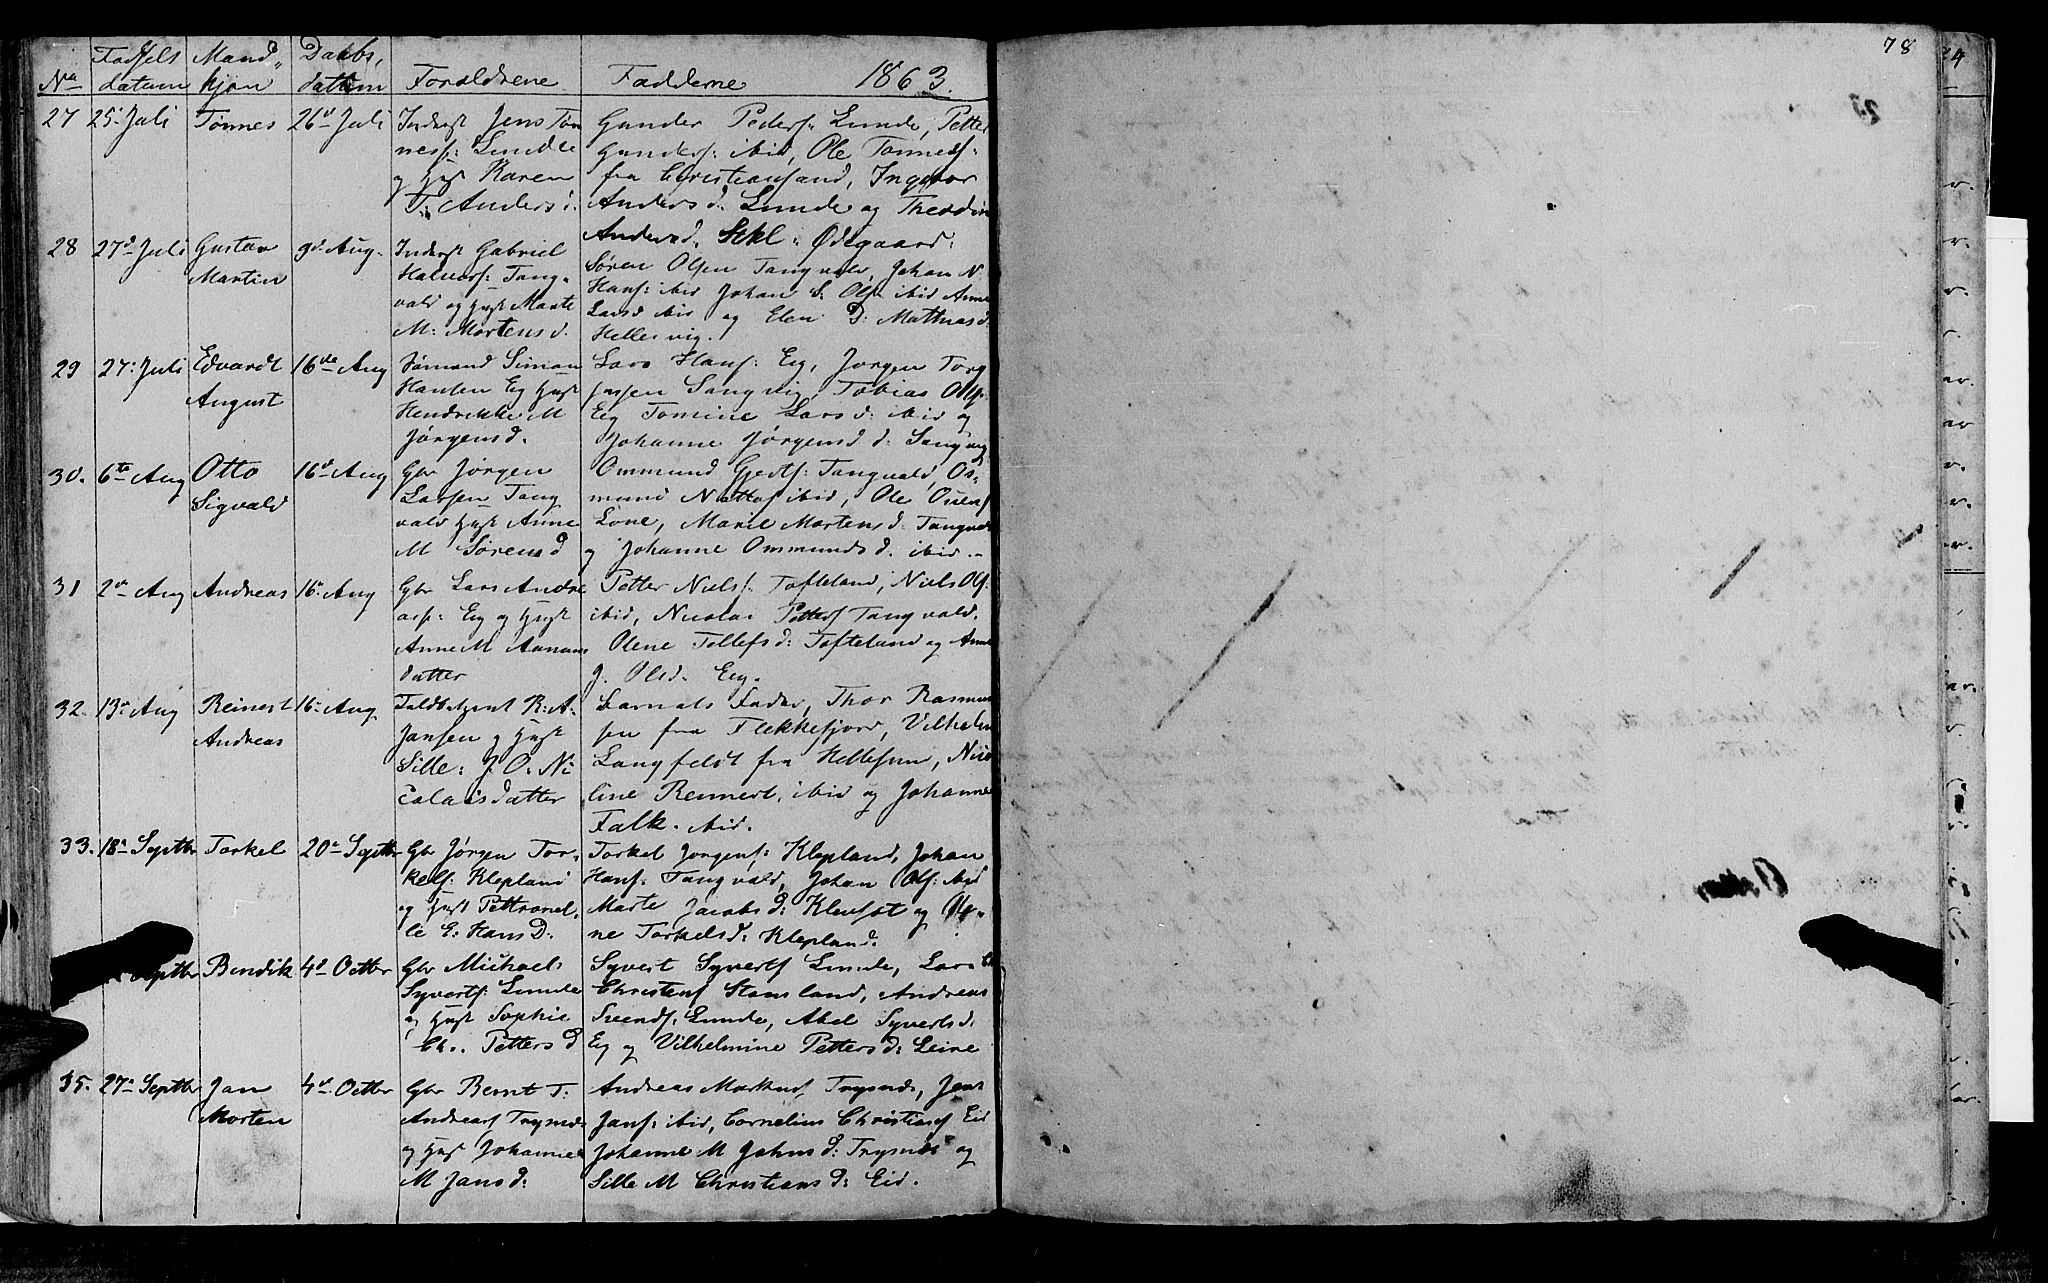 No Fødsels datum Mand„ kjøn Daabs, datum Forældrene Fadderne 1863.
27 25 Juli Tønnes 26d Juli Inderst Jens Tøn
nesf: Lunde
og Hust Karen
T: Andersd.
Gunder Pedersf: Lunde, Petter
Gundersf: ibid, Ole Tønnesf:
fra Christiansand, Ingebor
Andersd. Lunde og Theodine
Andersd. Ødegaard:
28 27d Juli Gustav
Martin
9d Aug. Inderst Gabriel
Halvorsf: Tang„
vald og Hust Marte
M: Mortensd.
Søren Olsen Tangvald, Johan N.
Hansf: ibid Johan S. Olsf: ibid Anne
Larsd ibid og Elen D: Mathiasd.
Hellevig.
29 27: Juli Edvardt
August
16de Aug Sømand Simon
Hansen Eg Hust
Hendrikke M
Jørgensd.
Lars Hansf: Eg, Jørgen Torg
jusen Sangvig, Tobias Olsf:
Eg Tomine Larsd: ibid og
Johanne Jørgensd: Sangvig
30. 6te Aug Otto
Sigvald
16d Aug Gbr Jørgen
Larsen Tang
vald Hust Anne
M Sørensd
Ommund Gjertsf: Tangvald, Os„
mund ibid, Ole Osuens
Lone, Marie Mortensd: Tangvald
og Johanne Ommundsd. ibid.
31 2d Aug Andreas 16d Aug Gbr Lars Andre
asf: Eg og Hust
Anne M Aanans
datter
Petter Nielsf. Tofteland, Niels Olsf:
ibid, Nicolai Pettersf Tangvald.
Olene Tellefsd: Tofteland og Anne
J. Olsd. Eg.
32. 13d Aug Reinert
Andreas
16d Aug R: A:
Jansen og Hust
Sille: J. O: Ni
colaisdatter
Barnets Fader, Thor Rasmus
sen fra Flekkefjord, Vilhelm
Langfeldt fra Hellesun, Nico
line Reinert, ibid og Johanne
Falk. ibid.
33. 18d Septbr Torkel 20d Septbr Gbr Jørgen Tor„
kelsf: Klepland
og Hust Pettronel„
le E: HansD.
Torkel Jørgensf: Klepland, Johan
Hansf: Tangvald, Johan Olsf: ibid
Marte Jacobsd: Klevset og
ne Torkelsd: Klepland.
Septbr Bendik 4d Octbr Gbr Michael
Syvertsf: Lunde
og Hust Sophie
Ch.. Pettersd
Syvert Syvertsf Lunde, Lars
Christensf Stausland, Andreas
Svendsf. Lunde, Abel Syvertsd.
Eg og Vilhelmine Pettersd: Leire
35. 27d Septbr Jan
Morten
4d Octbr Gbr Bernt T:
Andreasf Trysnæs
og Hust Johanne
M Jansd:
Andreas Markusf Trysnæs, Jens
Jansf: ibid, Cornelius Christiansf Eid
Johanne M Jahnsd: Trysnæs og
Sille M Christiansd: Eid.
78